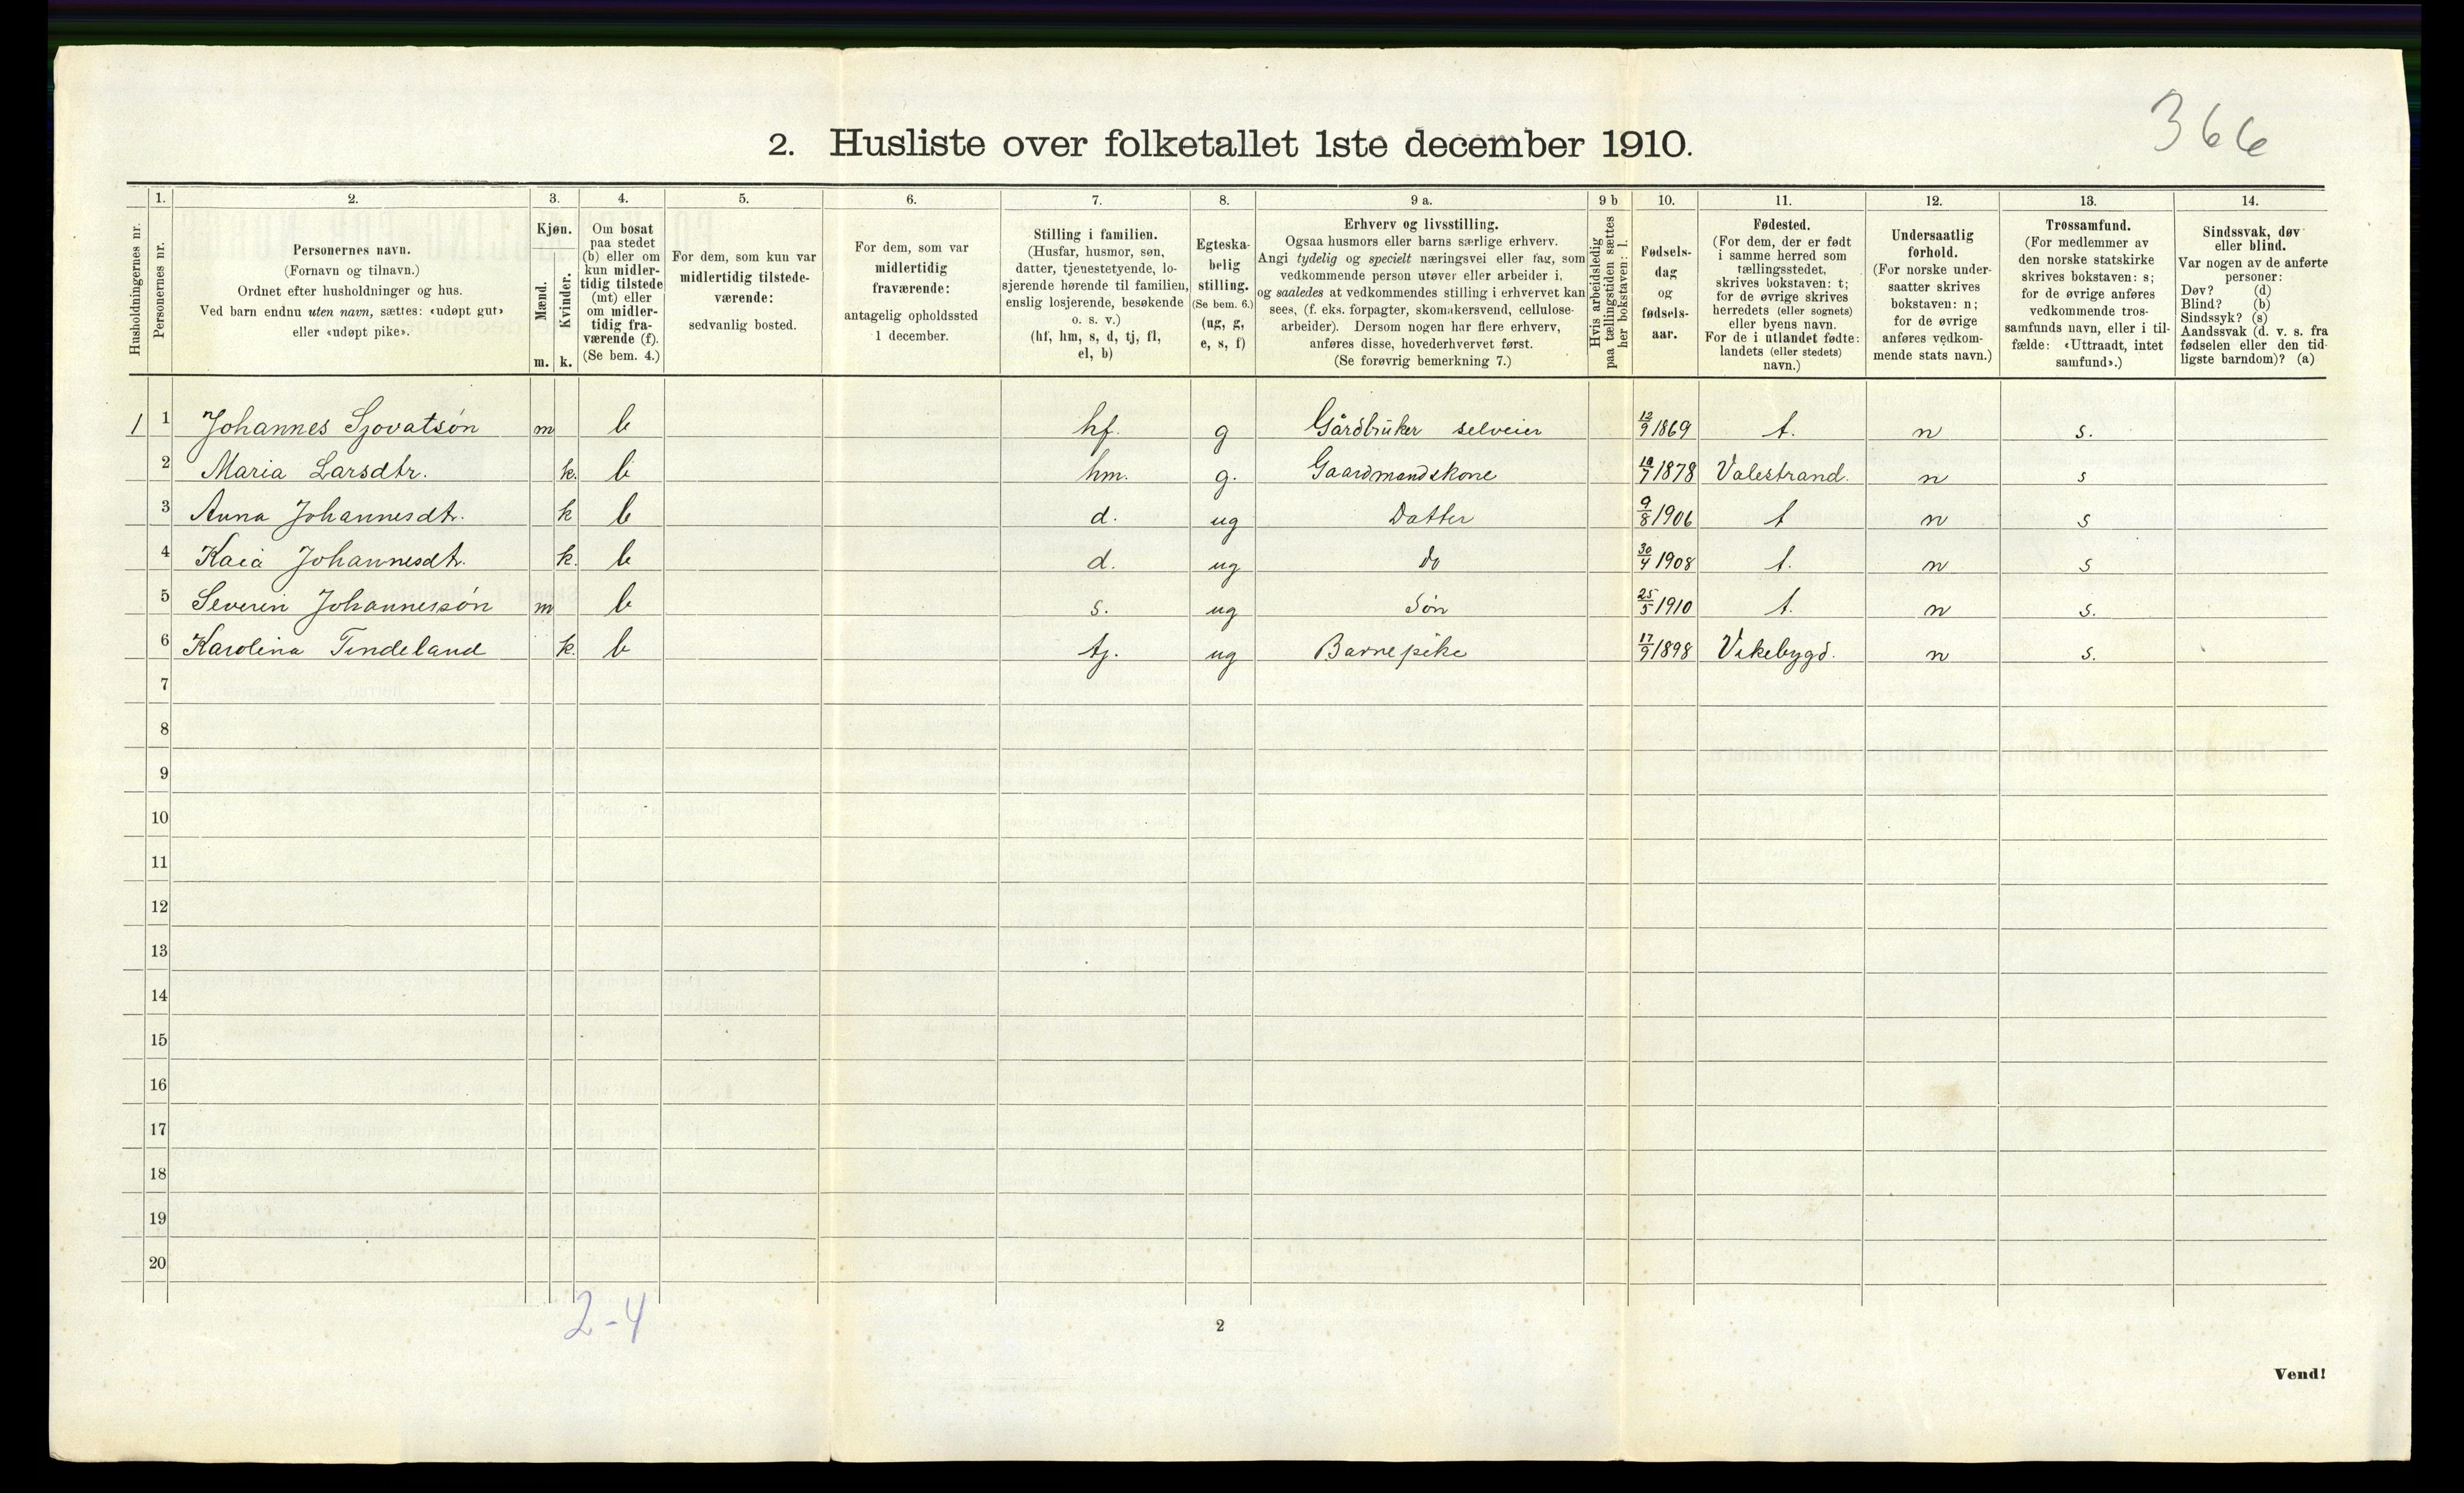 366
2. Husliste over folketallet 1ste december 1910.
1. 2. 3. 4. 5. 6. 7. 8. 9 a. 9 b 10. 11. 12. 13. 14.
Husholdningernes nr.
Personernes nr.
Personernes navn.
(Fornavn og tilnavn.)
Ordnet efter husholdninger og hus.
Ved barn endnu uten navn, sættes: «udøpt gut»
eller «udøpt pike».
Kjøn.
Mænd.
Kvinder.
m. k.
Om bosat
paa stedet
(b) eller om
kun midler-
tidig tilstede
(mt) eller
om midler-
tidig fra-
værende (f).
(Se bem. 4.)
For dem, som kun var
midlertidig tilstede-
værende:
sedvanlig bosted.
For dem, som var
midlertidig
fraværende:
antagelig opholdssted
1 december.
Stilling i familien.
(Husfar, husmor, søn,
datter, tjenestetyende, lo-
sjerende hørende til familien,
enslig losjerende, besøkende
o. s. v.)
(hf, hm, s, d, tj, fl,
el, b)
Egteska-
belig
stilling.
(Se bem. 6.)
(ug, g,
e, s, f)
Erhverv og livsstilling.
Ogsaa husmors eller barns særlige erhverv.
Angi tydelig og specielt næringsvei eller fag, som
vedkommende person utøver eller arbeider i,
og saaledes at vedkommendes stilling i erhvervet kan
sees, (f. eks. forpagter, skomakersvend, cellulose-
arbeider). Dersom nogen har flere erhverv,
anføres disse, hovederhvervet først.
(Se forøvrig bemerkning 7.)
Hvis arbeidsledig
paa tællingstiden sættes
her bokstaven: l.
Fødsels-
dag
og
fødsels-
aar.
Fødested.
(For dem, der er født
i samme herred som
tællingsstedet,
skrives bokstaven: t;
for de øvrige skrives
herredets (eller sognets)
eller byens navn.
For de i utlandet fødte:
landets (eller stedets)
navn.)
Undersaatlig
forhold.
(For norske under-
saatter skrives
bokstaven: n;
for de øvrige
anføres vedkom-
mende stats navn.)
Trossamfund.
(For medlemmer av
den norske statskirke
skrives bokstaven: s;
for de øvrige anføres
vedkommende tros-
samfunds navn, eller i til-
fælde: «Uttraadt, intet
samfund».)
Sindssvak, døv
eller blind.
Var nogen av de anførte
personer:
Døv? (d)
Blind? (b)
Sindssyk? (s)
Aandssvak (d. v. s. fra
fødselen eller den tid-
ligste barndom)? (a)
1 1 Johannes Sjovatsøn m b hf. g Gårdbruker selveier 12/9 1869 t. n s.
2 Maria Larsdtr. k. b hm. g. Gaardmandskone 1878 Valestrand. n s
3 Anna Johannesdtr. k b d. ug Datter 9/8 1906 t n s
4 Kaia Johannesdtr. k. b d. ug do 30/4 1908 t. n s
5 Severin Johannessøn m b s. ug Søn 25/5 1910 t. n s.
6 Karolina Tindeland k. b tj. ug Barnepike 17/9 1898 Vikebygd. n s.
7
8
9
10
11
12
13
14
15
16
17
18
19
20
2-4
2
Vend!